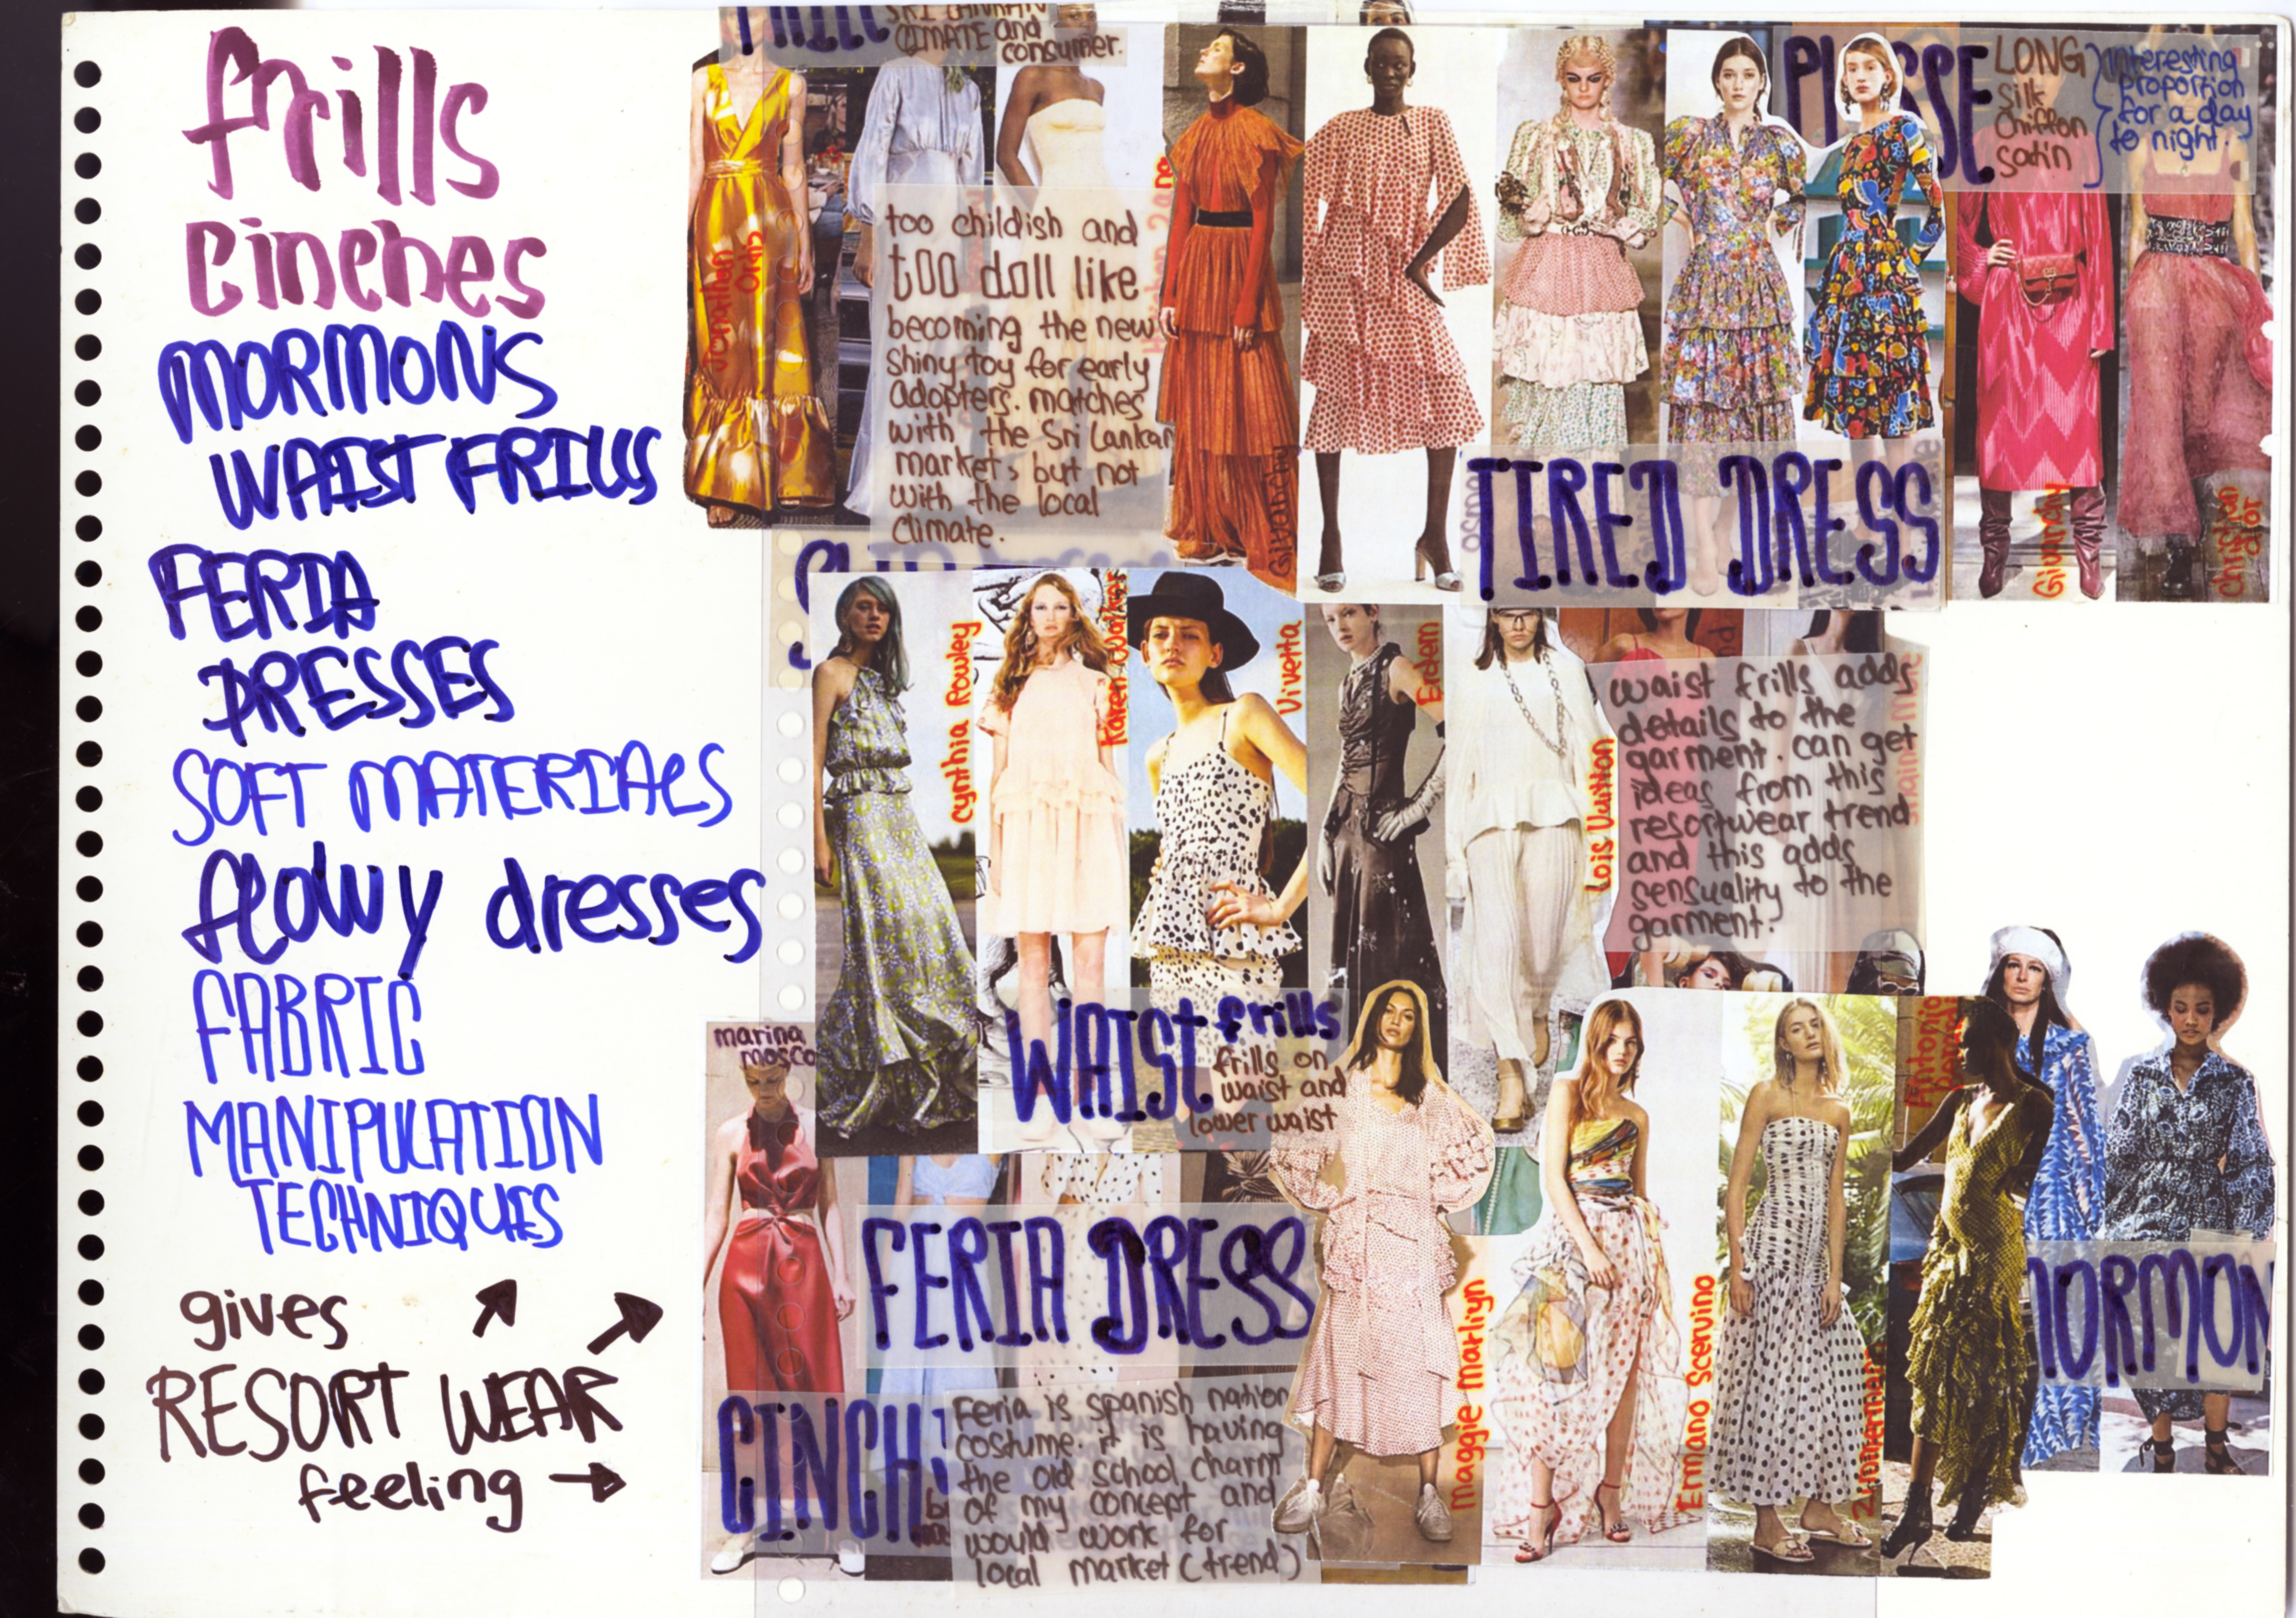 frills
Cinches
MORMONS
WAIST FRILLS
FERIA
DRESSES
SOFT MATERIALS
flowy dresses
FABRIC
MANIPULATION
TECHNIQUES
gives
RESORT WEAR
feeling
SRI LANKAN
CLIMATE and
consumer.
Jonathan
too childish and
too doll like
becoming the new
shiny toy for early
adopters. matches
with the Sri Lankan
market, but not
with the local
climate.
TIRED DRESS
LONG
Silk
Chiffon
Satin
interesting
proportion
for a day
to night.
Givenchy
christian
dior
Cynthia Rowley
Karen Walker
Vivetta
Erdem
Lois Vuitton
waist frills adds
details to the
garment. can get
ideas from this
resortwear trend
and this adds
sensuality to the
garment.
WAIST frills
frills on
waist and
lower waist
marina
mosco
FERIA DRESS
CINCH
Feria is spanish nation
costume. it is having
the old school charm
of my concept and
would work for
local market (trend)
Maggie Marliyn
Ermano Scervino
Zimmermann
Antonio
MORMON